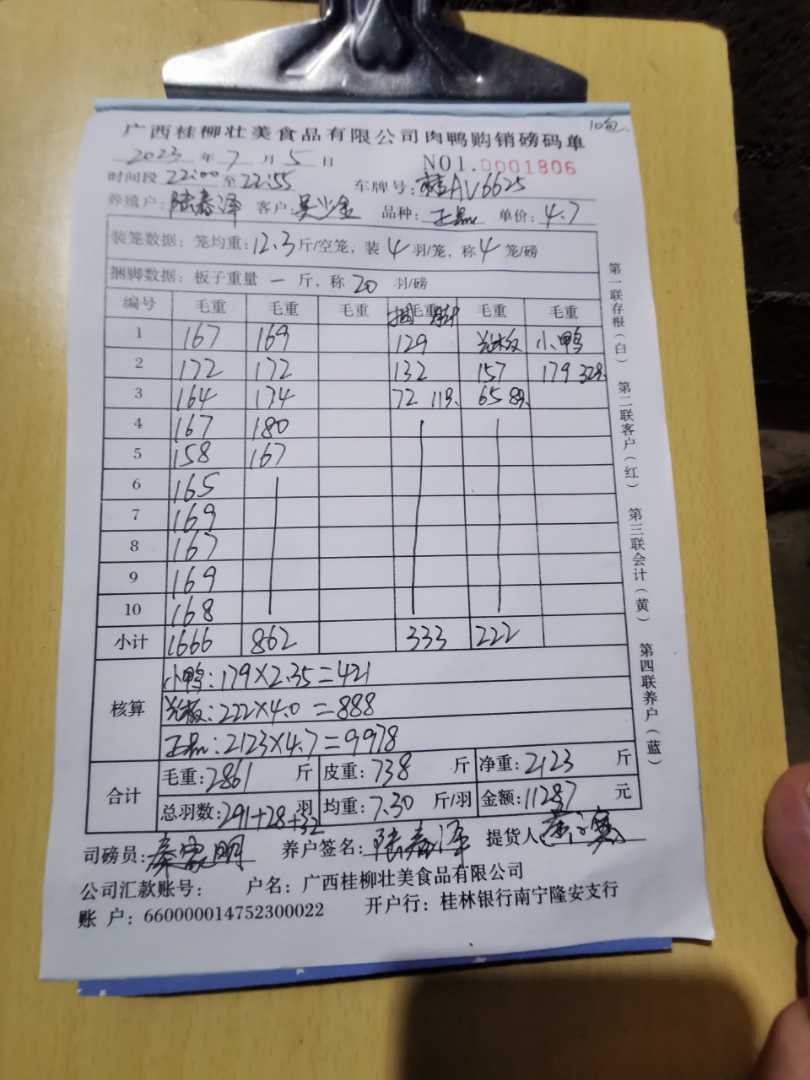 10包
广西桂柳壮美食品有限公司肉鸭购销磅码单
2023 年 7 月 5 日 NO1.0001806
时间段 22:00 至 22:55 车牌号: 桂AV6625
养殖户: 陆春泽 客户: 吴少金 品种: 正品 单价: 4.7
装笼数据: 笼均重: 12.3 斤/空笼, 装 4 羽/笼, 称 4 笼/磅
捆脚数据: 板子重量 一 斤, 称 20 羽/磅
编号 毛重 毛重 毛重 捆脚 毛重 毛重 毛重
1 167 169 129 光板 小鸭
2 172 172 132 157 179 32羽
3 164 174 72 11羽 65 8羽
4 167 180
5 158 167
6 165
7 169
8 167
9 169
10 168
小计 1666 862 333 222
核算 小鸭: 179×2.35=421
光板: 222×4.0=888
正品: 2123×4.7=9978
合计 毛重: 2861 斤 皮重: 738 斤 净重: 2123 斤
总羽数: 291+28+32 羽 均重: 7.30 斤/羽 金额: 11287 元
司磅员: 秦家明 养户签名: 陆春泽 提货人
公司汇款账号: 户名: 广西桂柳壮美食品有限公司
账 户: 660000014752300022 开户行: 桂林银行南宁隆安支行
第一联存根(白) 第二联客户(红) 第三联会计(黄) 第四联养户(蓝)